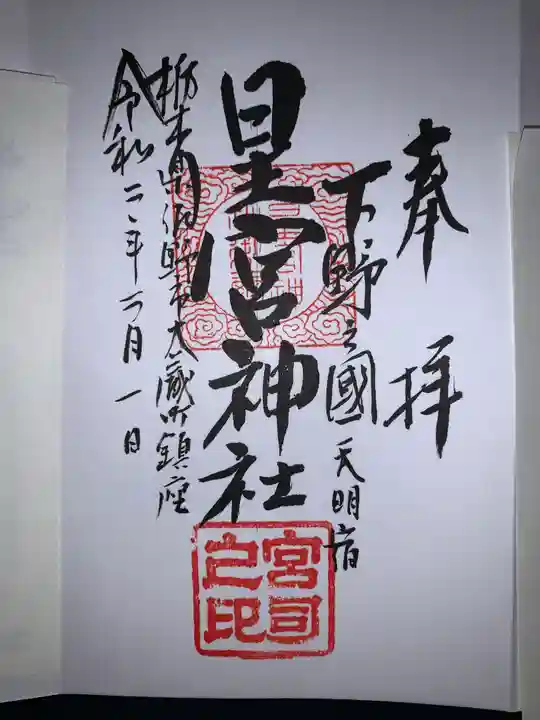 奉拝
下野之國 天明宿
星宮神社
栃木県佐野市大蔵町鎮座
令和二年二月一日
宮司之印